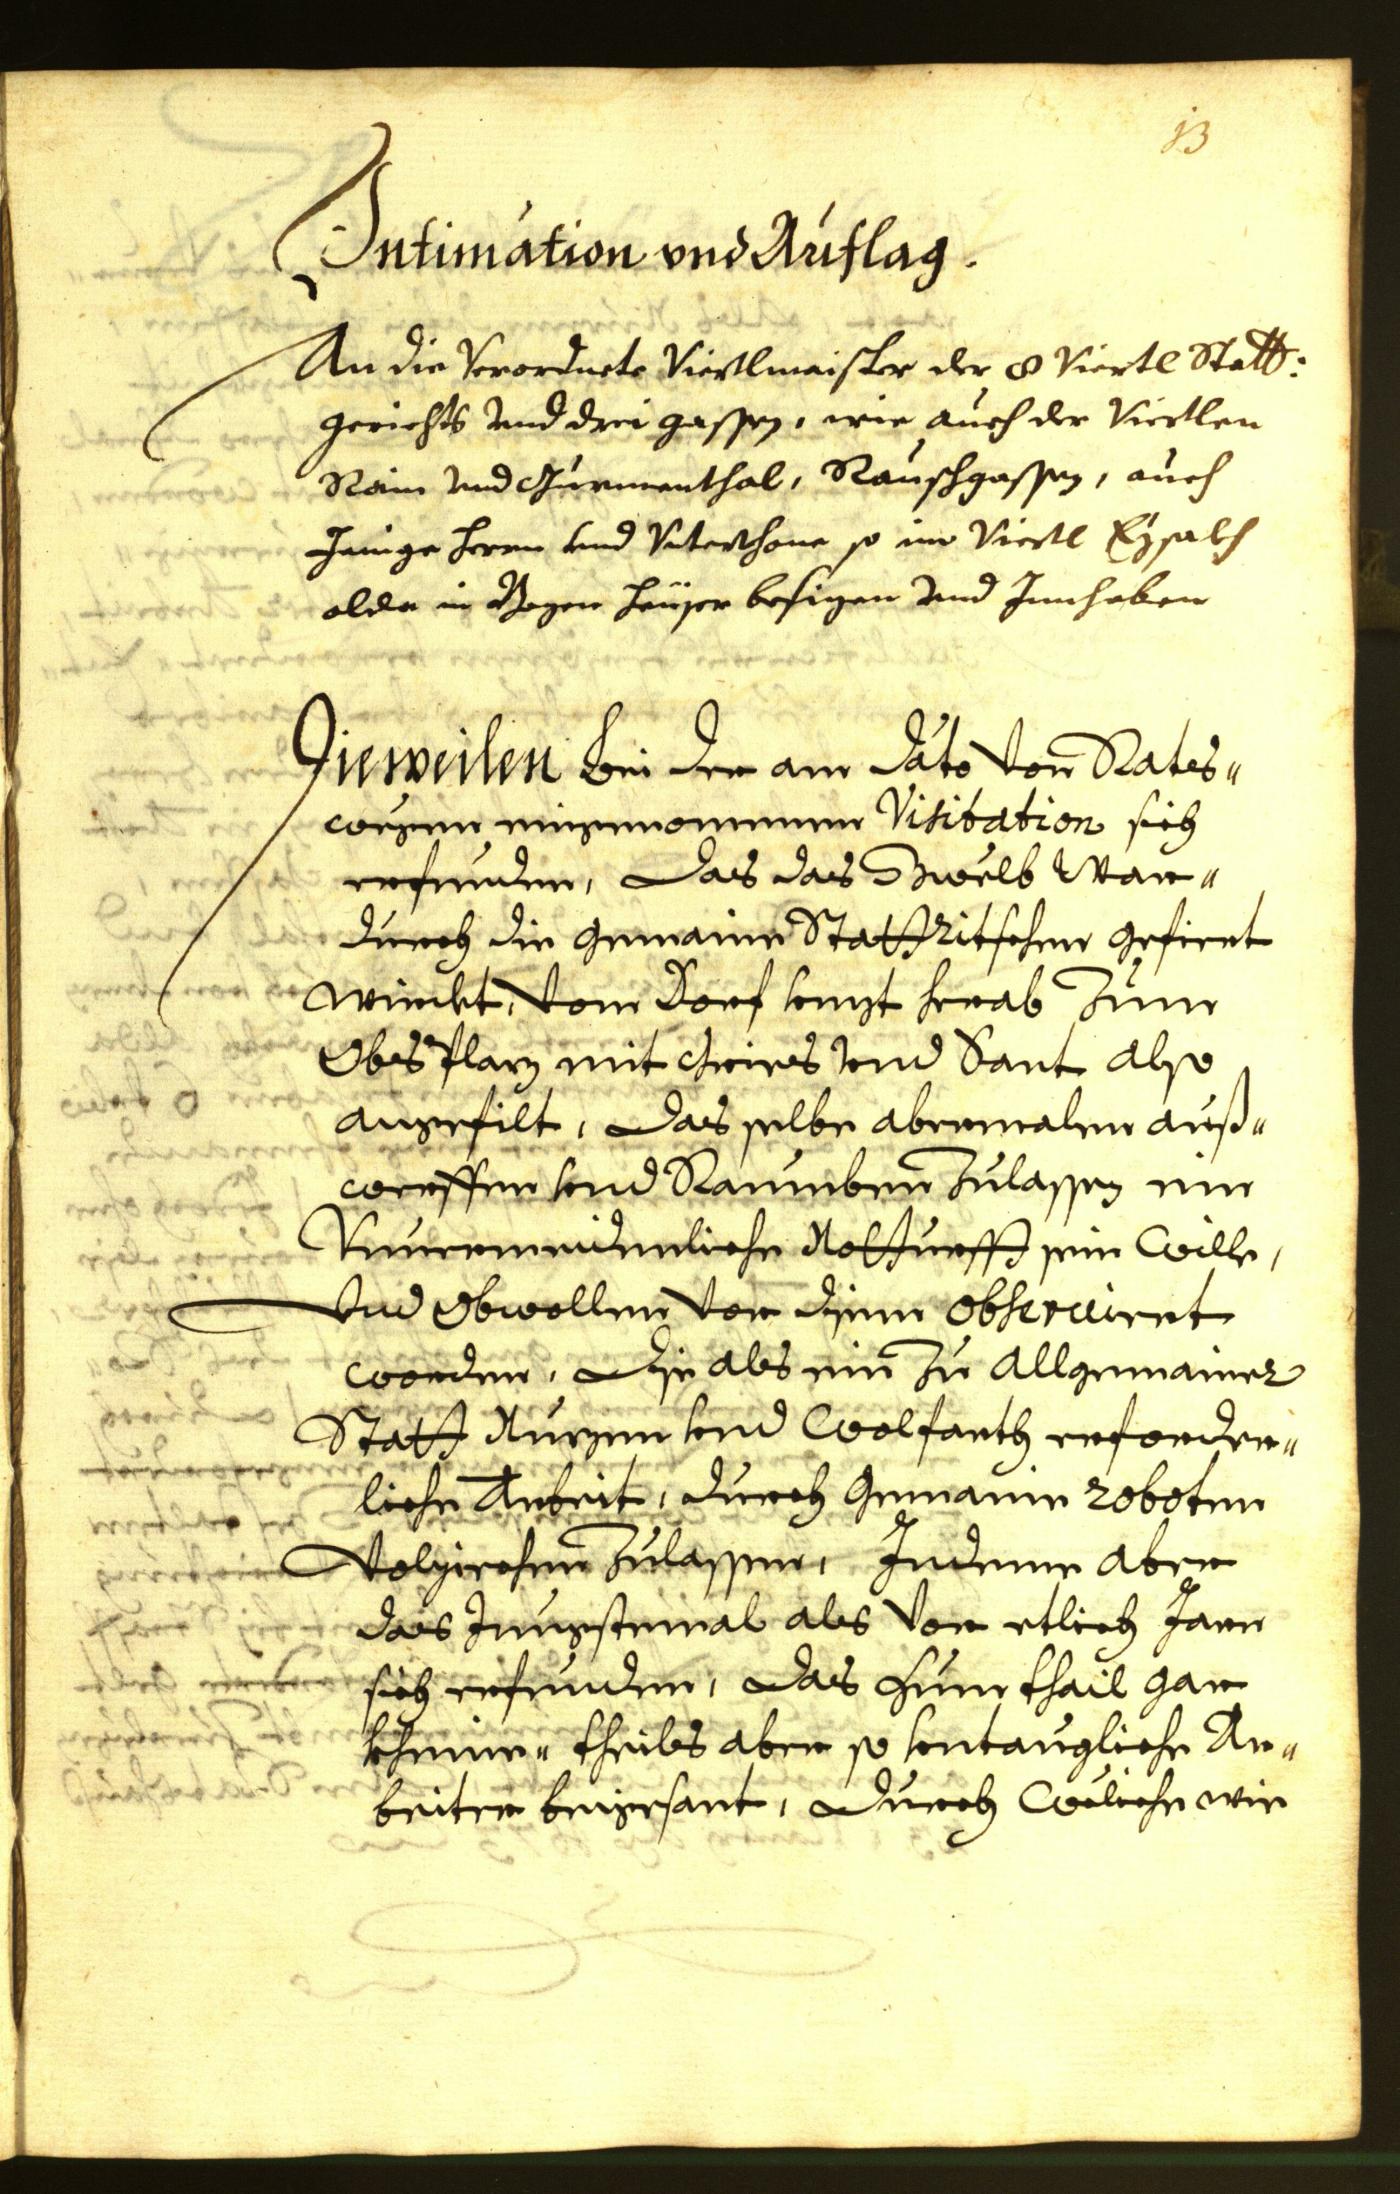 13
Intimation vnd Auflag.
An die verordnete Viertlmaister der 8 Viertl Statt:
gerichts vnd drei gassen, wie auch der Viertlen
Rain vnd Thurmenthal, Rauschgassen, auch
Jenige herrn vnd so im Viertl Eysakh
alda in Bozen heuser besizen vnd Innhaben
Dieweilen bei der am dato von Rats"
wegen eingenommnen Visitation sich
erfunden, das das Gwelb War"
durch die gemaine Stattritschen gefiert
wirdet, vom Dorf lengst herab zum
Obs Plaz mit vnd Sant also
angefilt, das selbe abermalen auß"
werffen vnd Raumben zulassen ein
Vnuermeidenliche Notturfft sein Wille,
vnd obwollen vor disem obseruiert
worden, dise als ein zu allgemainer
Statt Nuzen vnd Wolfarth erforder"
liche Arbeit, durch gemaine roboten
volziechen zulassen, Indeme aber
das Jüngstemal als vor etlich Jarn
sich erfunden, das zum thail gar
khaine" theils aber so vntaugliche Ar"
beiter beigesant, durch Weliche wie